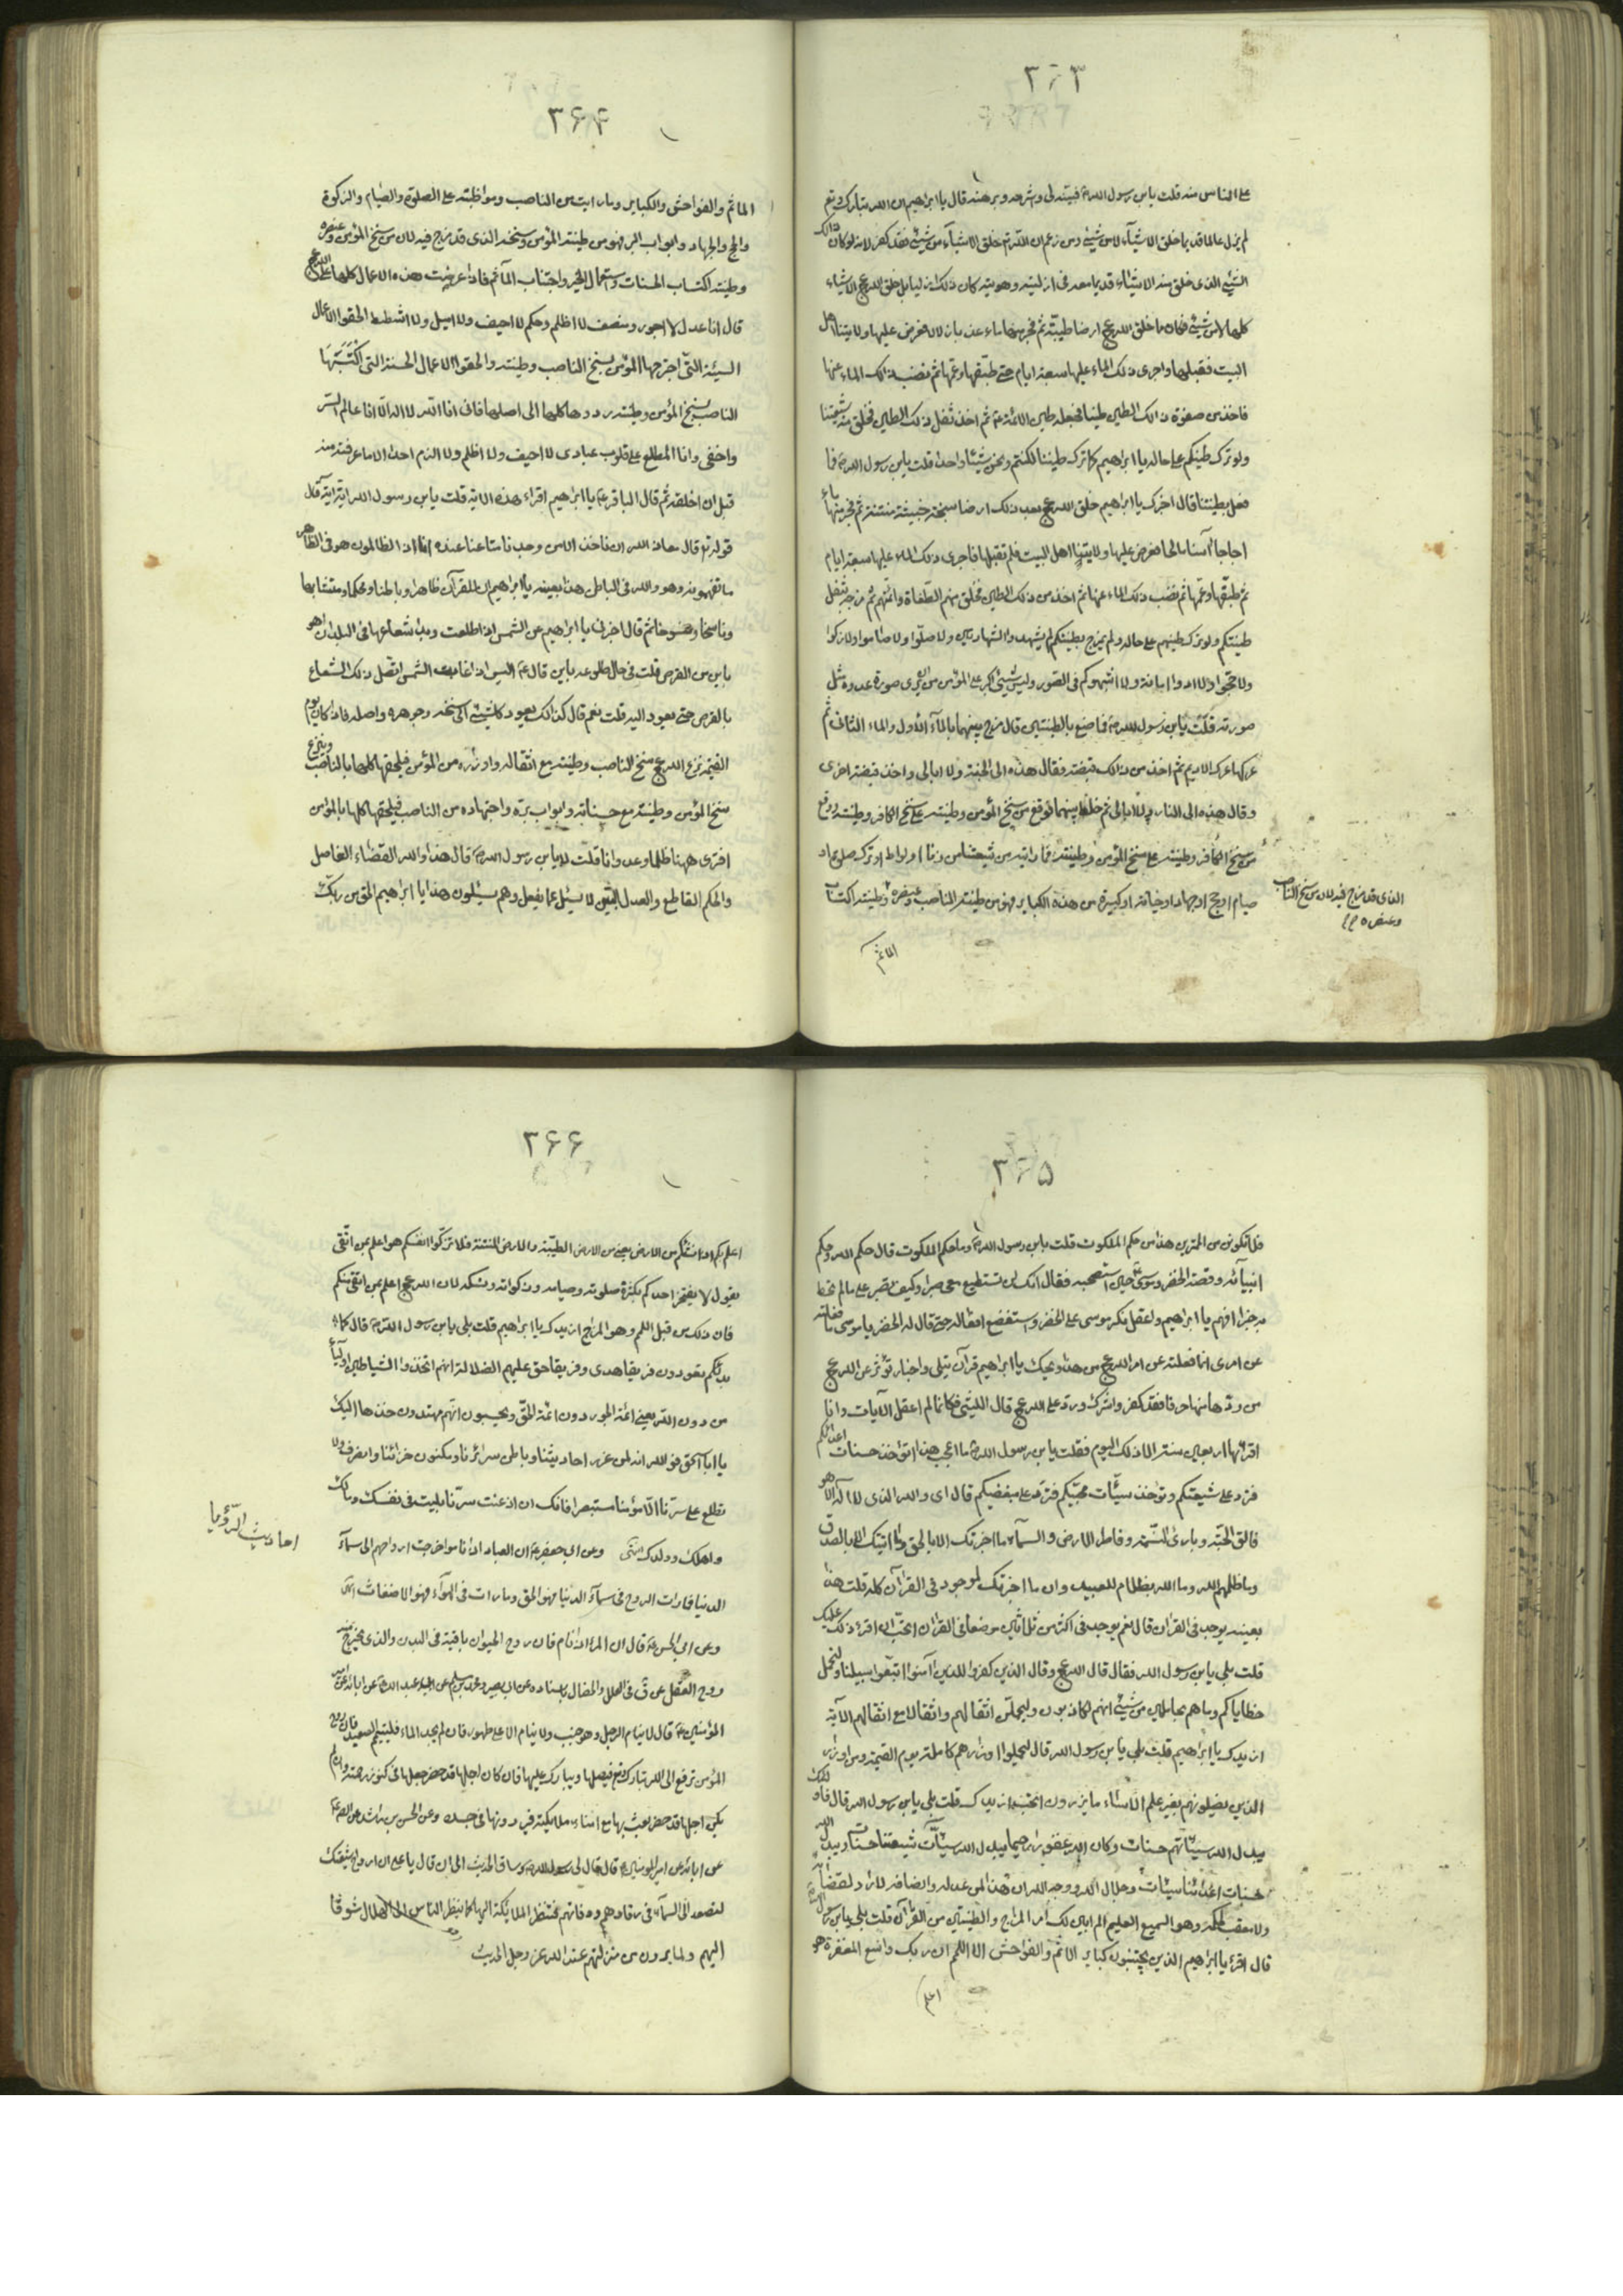 ٣٦٣
على الناس منه قلت يابن رسول الله فبينه لى واشرحه وبرهنه قال يا ابراهيم ان الله تبارك وتع
لم يزل عالما قديما خلق الاشيآء لا من شيئ ومن زعم ان الله خلق الاشيآء من شيئ فقد كفر لانه لو كان ذلك
الشيئ الذى خلق منه الاشيآء قديما معه فى ازليته وهويته كان ذلك ازليا بل خلق الله عج الاشياء
كلها لا من شيئ فكان ما خلق الله عج ارضا طيبة ثم فجر منها ماء عذبا زلالا فعرض عليها ولايتنا اهل
البيت فقبلها واجرى ذلك الماء عليها سبعة ايام حتى طبقها وعمها ثم نضب ذلك الماء عنها
فاخذ من صفوة ذالك الطين طينا فجعله طين الائمة ثم اخذ ثفل ذلك الطين فخلق منه شيعتنا
ولو ترك طينكم على حاله يا ابراهيم كما ترك طيننا لكنتم ونحن شيئا واحدا قلت يابن رسول الله فما
فعل بطينتنا قال اخبرك يا ابراهيم خلق الله عج بعد ذلك ارضا سبخة خبيثة منتنة ثم فجر منها ماء
اجاجا آسنا مالحا فعرض عليها ولايتنا اهل البيت فلم تقبلها فاجرى ذلك الماء عليها سبعة ايام
ثم طبقها وعمها ثم نضب ذلك الماء عنها ثم اخذ من ذلك الطين فخلق منهم الطغاة وائمتهم ثم مزجه بثفل
طينتكم ولو ترك طينهم على حاله ولم يمزج بطينتكم لم يشهدوا الشهادتين ولا صلوا ولا صاموا ولا زكوا
ولا حجوا ولا ادوا امانة ولا اشبهوكم فى الصور وليس شيئ اكبر على المؤمن من ان يرى صورة عدوه مثل
صورته قلت يابن رسول الله فما صنع بالطينتين قال مزج بينهما بالمآء الاول والماء الثانى ثم
عركها عرك الاديم ثم اخذ من ذالك قبضة فقال هذه الى الجنة ولا ابالى واخذ قبضة اخرى
وقال هذه الى النار ولا ابالى ثم خلط بينهما فوقع من سنخ المؤمن وطينته على سنخ الكافر وطينته ووقع
من سنخ الكافر وطينته على سنخ المؤمن وطينته فما رايته من شيعتنا من زنا او لواط او ترك صلوة او
صيام او حج او جهاد او خيانة او كبيرة من هذه الكباير فهو من طينة الناصب وعنصره وطينته اكتساب
الذى قد مزج فيه لان من سنخ الناصب
وعنصره
الماثم
٣۶۴
الماثم والفواحش والكباير وما رايت من الناصب ومواظبته على الصلوة والصيام والزكوة
والحج والجهاد وابواب البر فهو من طينة المؤمن وسنخه الذى قد مزج فيه لان من سنخ المؤمن وعنصره
وطينته اكتساب الحسنات واستعمال الخير واجتناب المآثم فاذا عرضت هذه الاعمال كلها على الله عج
قال انا عدل لا اجور ومنصف لا اظلم وحكم لا احيف ولا اميل ولا اشطط الحقوا الاعمال
السيئة التى اجترحها المؤمن بسنخ الناصب وطينته والحقوا الاعمال الحسنة التى اكتسبها
الناصب بسنخ المؤمن وطينته ردوها كلها الى اصلها فانى انا الله لا اله الا انا عالم السر
واخفى وانا المطلع على قلوب عبادى لا احيف ولا اظلم ولا الزم احدا الا ما عرفته منه
قبل ان اخلقه ثم قال الباقر يا ابراهيم اقراء هذه الاية قلت يابن رسول الله اية اية قال
قوله تع قال معاذ الله ان ناخذ الا من وجدنا متاعنا عنده انا اذا لظالمون هو فى الظاهر
ما تفهمونه وهو والله فى الباطن هذا بعينه يا ابراهيم ان للقرآن ظاهرا وباطنا ومحكما ومتشابها
وناسخا ومنسوخا ثم قال اخبرنى يا ابراهيم عن الشمس اذا طلعت وبدا شعاعها فى البلدان اهو
باين من القرص قلت فى حال طلوعه باين قال اليس اذا غابت الشمس اتصل ذلك الشعاع
بالقرص حتى يعود اليه قلت نعم قال كذلك يعود كل شيئ الى سنخه وجوهره واصله فاذا كان يوم
القيمة نزع الله عج سنخ الناصب وطينته مع اثقاله واوزاره من المؤمن فيلحقها كلها بالناصب وينزع
سنخ المؤمن وطينته مع حسناته وابواب بره واجتهاده من الناصب فيلحقها كلها بالمؤمن
افترى ههنا ظلما وعدوانا قلت لا يابن رسول الله قال هذا والله القضاء الفاصل
والحكم القاطع والعدل البين لا يسئل عما يفعل وهم يسئلون هذا يا ابراهيم الحق من ربك
٣۶۵
فلا تكونن من الممترين هذا من حكم الملكوت قلت يابن رسول الله وما حكم الملكوت قال حكم الله وحكم
انبيآئه وقصة الخضر وموسى حين استصحبه فقال انك لن تستطيع معى صبرا وكيف تصبر على ما لم تحط
به خبرا افهم يا ابراهيم واعقل انكر موسى على الخضر واستفضع افعاله حتى قال له الخضر يا موسى ما فعلته
عن امرى انما فعلته عن امر الله عج من هذا ويحك يا ابراهيم قرآن يتلى واخبار تؤثر عن الله عج
من رد منها حرفا فقد كفر واشرك ورد على الله عج قال الليثى فكانما لم اعقل الآيات وانا
اقرئها اربعين سنة الا ذلك اليوم فقلت يابن رسول الله ما اعجب هذا اتؤخذ حسنات اعدائكم
فترد على شيعتكم وتؤخذ سيئات محبيكم فترد على مبغضيكم قال اى والله الذى لا اله الا هو
فالق الحبة وبارئ النسمة وفاطر الارض والسمآء ما اخبرتك الا بالحق وما اتيتك الا بالصدق
وما ظلمهم الله وما الله بظلام للعبيد وان ما اخبرتك لموجود فى القرآن كله قلت هذا
بعينه يوجد فى القران قال نعم يوجد فى اكثر من ثلاثين موضعا فى القران اتحب ان اقرء ذلك عليك
قلت بلى يابن رسول الله فقال قال الله عج وقال الذين كفروا للذين آمنوا اتبعوا سبيلنا ولنحمل
خطاياكم وما هم بحاملين من شيئ انهم لكاذبون وليحملن اثقالهم واثقالا مع اثقالهم الآية
ازيدك يا ابراهيم قلت بلى يابن رسول الله قال ليحملوا اوزارهم كاملة يوم القيمة ومن اوزار
الذين يضلونهم بغير علم الا ساء ما يزرون اتحب ان ازيدك قلت بلى يابن رسول الله قال فاولئك
يبدل الله سيئاتهم حسنات وكان الله غفورا رحيما يبدل الله سيئات شيعتنا حسنات ويبدل الله
حسنات اعدائنا سيئات وجلال الله ووجه الله ان هذا لمن عدله وانصافه لا راد لقضائه
ولا معقب لحكمه وهو السميع العليم الم ابين لك امر المزاج والطينتين من القرآن قلت بلى يابن رسول الله
قال اقرء يا ابراهيم الذين يجتنبون كباير الاثم والفواحش الا اللمم ان ربك واسع المغفرة هو
اعلم
٣۶۶
اعلم بكم اذ انشأكم من الارض يعنى من الارض الطيبة والارض المنتنة فلا تزكوا انفسكم هو اعلم بمن اتقى
يقول لا يفتخر احدكم بكثرة صلوته وصيامه وزكواته ونسكه لان الله عج اعلم بمن اتقى منكم
فان ذلك من قبل اللمم وهو المزاج ازيدك يا ابراهيم قلت بلى يابن رسول الله قال كما
بدأكم تعودون فريقا هدى وفريقا حق عليهم الضلالة انهم اتخذوا الشياطين اوليآء
من دون الله يعنى ائمة الجور دون ائمة الحق ويحسبون انهم مهتدون خذها اليك
يا ابا اسحق فو الله انه لمن غرر احاديثنا وباطن سرائرنا ومكنون خزائننا وانصرف ولا
تطلع على سرنا الا مؤمنا مستبصرا فانك ان اذعت سرنا بليت فى نفسك ومالك
واهلك وولدك انتهى وعن ابى جعفر ان العباد اذا ناموا خرجت ارواحهم الى سمآء
احاديث الرؤيا
الدنيا فما رات الروح فى سمآء الدنيا فهو الحق وما رات فى الهوآء فهو الاضغاث
وعن ابى الحسن قال ان المرء اذا نام فان روح الحيوان باقية فى البدن والذى يخرج منه
روح العقل عن ق فى العلل والخصال باسناده عن ابى بصير ومحمد بن مسلم عن ابى عبد الله عن ابائه عن امير
المؤمنين قال لا ينام الرجل وهو جنب ولا ينام الا على طهور فان لم يجد الماء فليتيمم بالصعيد فان روح
المؤمن ترفع الى الله تبارك وتع فيقبلها ويبارك عليها فان كان اجلها قد حضر جعلها فى كنوز رحمته وان لم
يكن اجلها قد حضر بعث بها مع امناء ملائكته فيردونها فى جسده وعن الحسن بن راشد عن الصادق
عن ابائه عن امير المؤمنين قال قال لى رسول الله وساق الحديث الى ان قال يا على ان ارواح شيعتك
لتصعد الى السمآء فى رقادهم ووفاتهم فتنظر الملائكة اليها كما ينظر الناس الى الهلال شوقا
اليهم ولما يرون من منزلتهم عند الله عز وجل الحديث